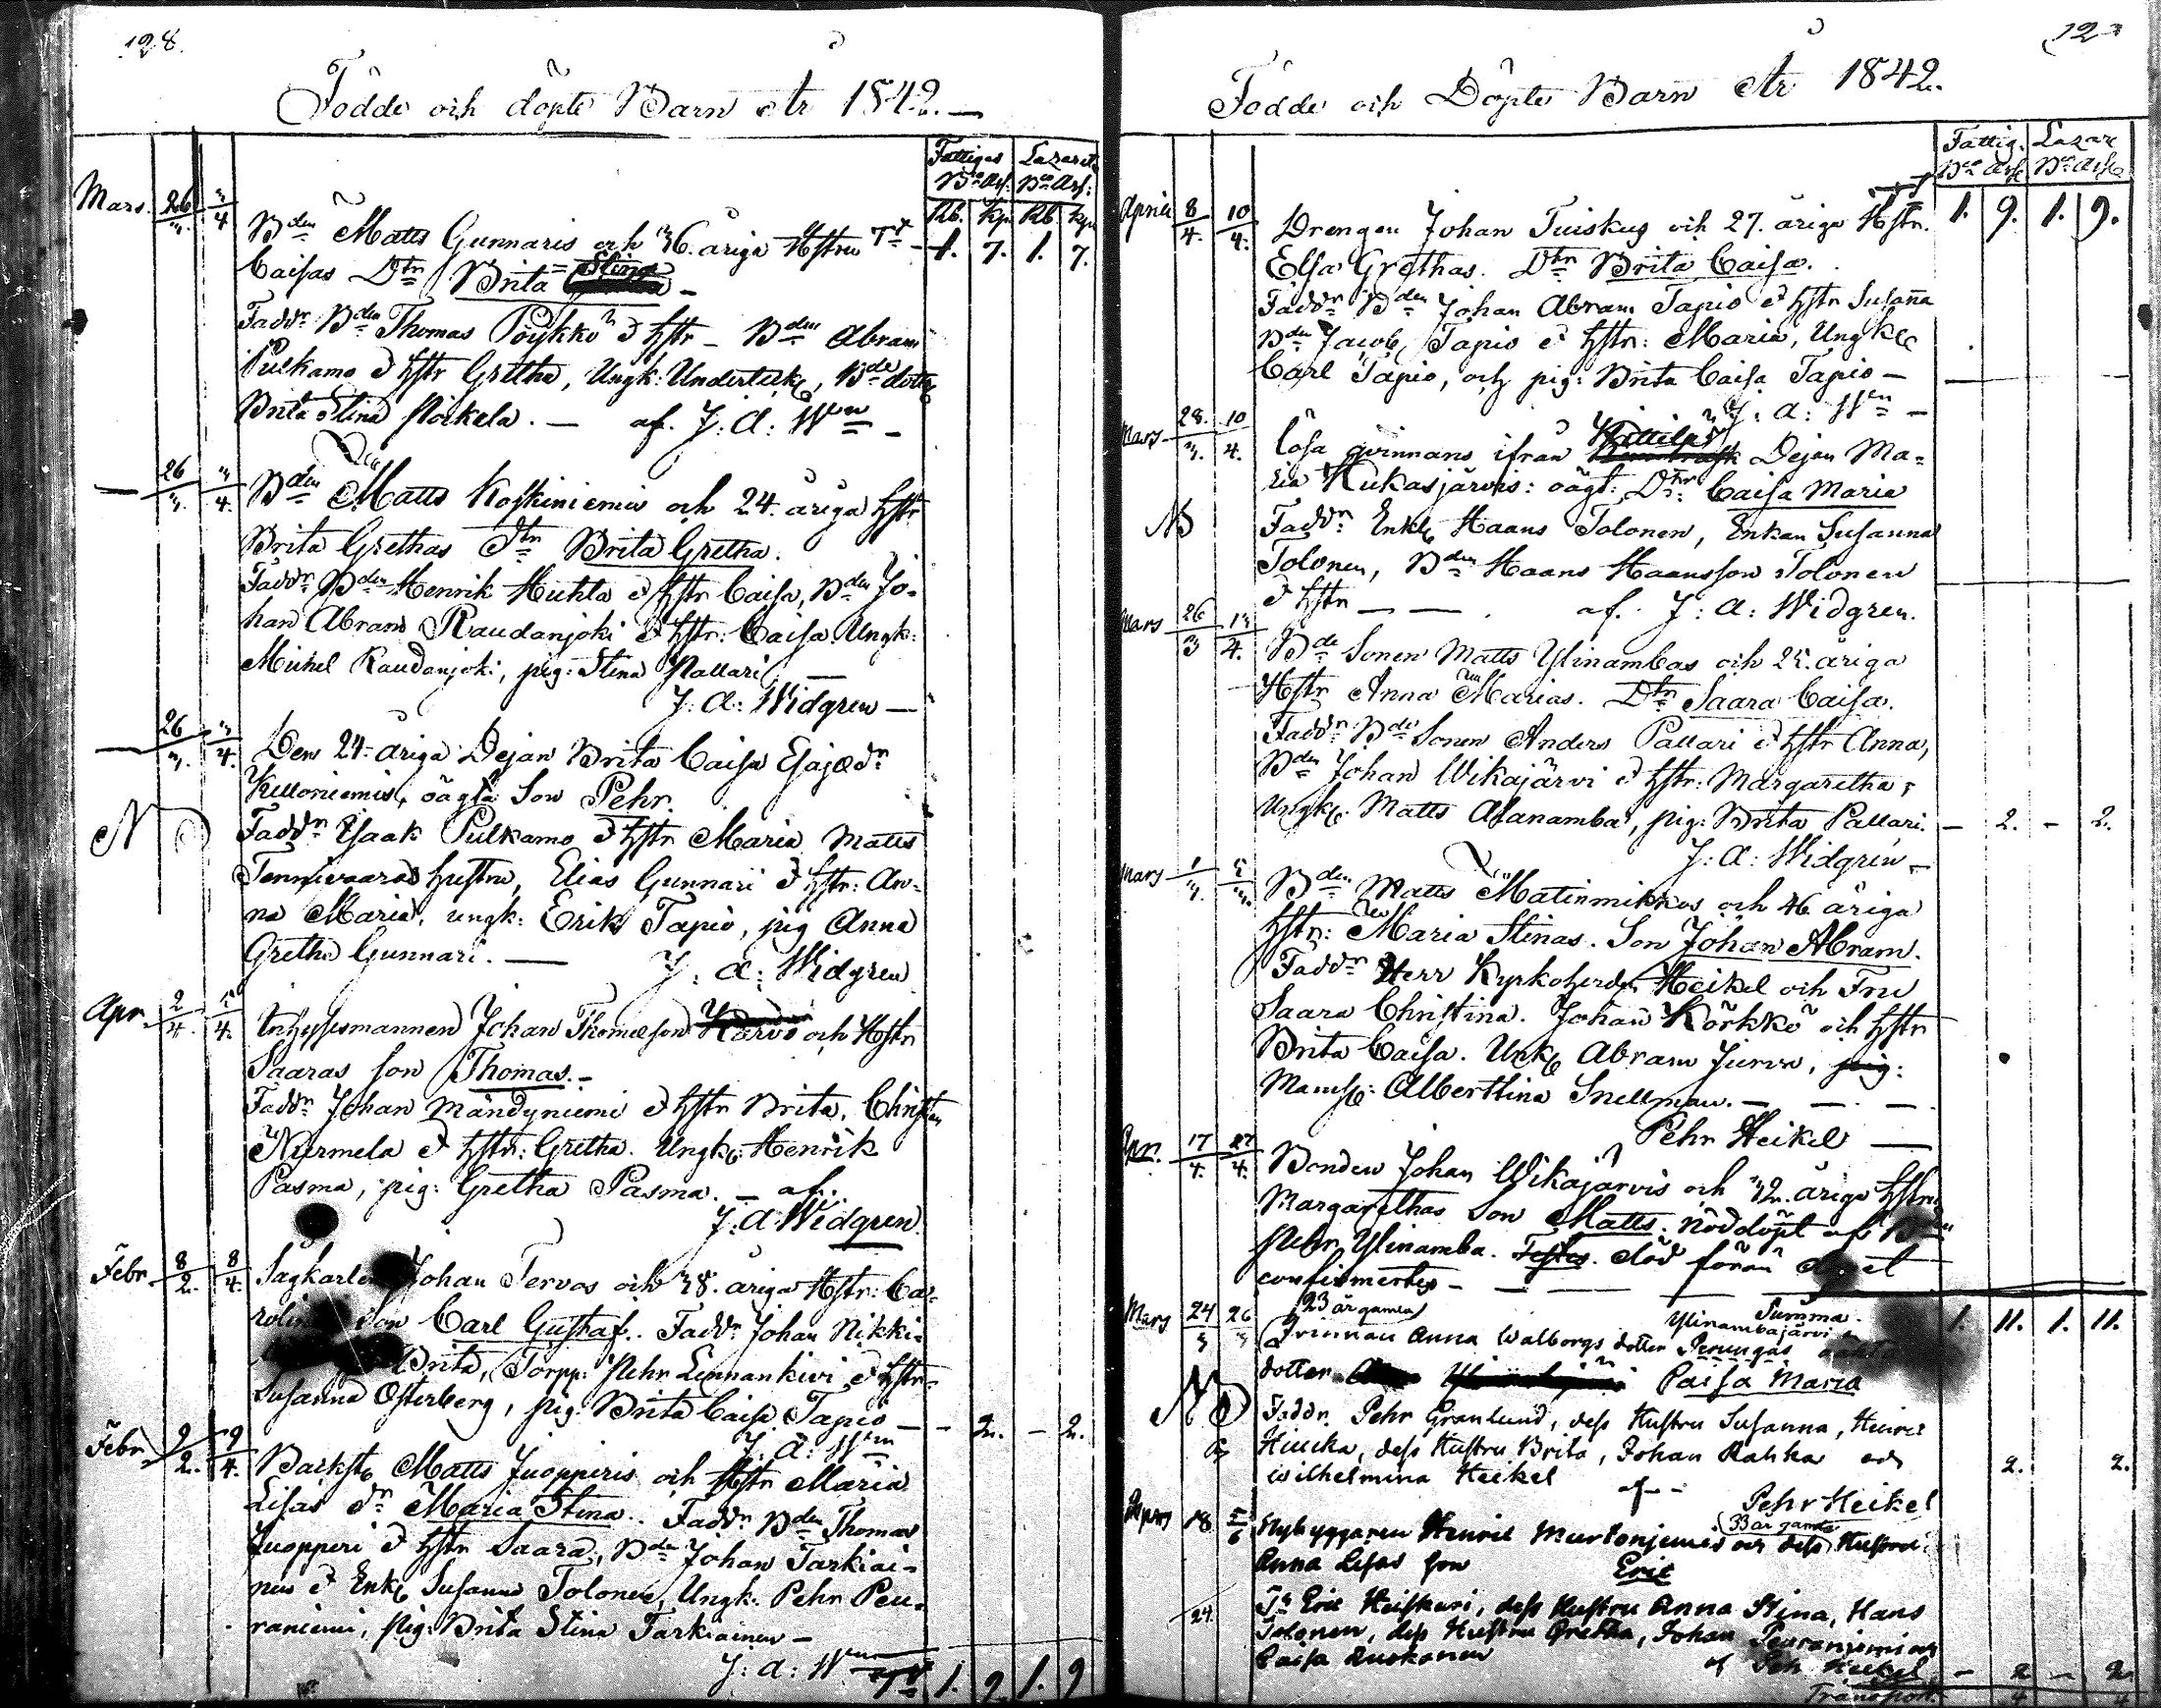 128.
Födde och döpte Barn År 1842.—
Fattigas Lazarets
Rb. kp. Rb. kp.
Mars. 26/3. 3/4
Bden Matts Gunnaris och 36. åriga Hstru Trt — 1. 7. 1. 7.
Caisas Dtr Brita = Stina —
Faddr Bden Thomas Pöykkö & hstr — Bden Abram
Pulkamo & hstr Gretha, Ungk:
Brita Stina — af. J: A: Wn —
— 26/3. 3/4.
Bden Matts Koskiniemis och 24. åriga hstr
Brita Grethas Dtr Brita Gretha.
Faddr Bden Henrik Huhta & hstr Caisa, Bden Jo-
han Abram Raudanjoki & hstr: Caisa. Ungk:
Michel Raudanjoki, pig: Stina Pallari —
J: A: Widgren —
— 26/3. 3/4.
Den 24-åriga Dejan Brita Caisa Esajædr
Kelloniemis, oägta Son Pehr.
NB
Faddr Isaak Pulkamo & hstr Maria, Matts
Tennivaaras hustru, Elias Gunnari & hstr: An-
na Maria, ungk: Erik Tapio, pig Anna
Gretha Gunnari. — J: A: Widgren
Apr. 2/4. /4.
Inhysesmannen Johan Thomasson och Hstr
Saaras son Thomas.—
Faddr Johan Mändyniemi & hstr Brita, Christian
Nurmela & hstr: Gretha. Ungk: Henrik
Pasma, pig: Gretha Pasma. — af.
J: A: Widgren.
Febr. 8/2. 8/4.
Sågkarlen Johan Tervos och 38. åriga Hstr: Ca-
rolinas Son Carl Gustaf. Faddr Johan Nikki-
Brita, Torpp: Pehr Linnankivi & hstr
Susanna Österberg, pig: Brita Caisa Tapio — — 2. — 2.
J: A: Wn
Febr. 9/2. 9/4.
Backst: Matts Juopperis och Hstr Maria
Lisas dr Maria Stina. Faddr Bden Thomas
Juopperi & hstr Saara, Bden Johan Tarkiai-
nen & Enk: Susanna Tolonen, Ungk: Pehr Peu-
raniemi, Pig: Brita Stina Tarkiainen —
J: A: Wn
1. 9. 1. 9
12
Födde och Döpte Barn År 1842.
Fattig. Lazar.
April 8/4. 10/4.
Drengen Johan Tuiskus och 27. åriga Hstr. 1. 9. 1. 9.
Elsa Grethas. Dtr Brita Caisa.
Faddr Bden Johan Abram Tapio & hstr Susanna
Bden Jacob Tapio & hstr: Maria, Ungk:
Carl Tapio, och pig: Brita Caisa Tapio —
J: A: Wn —
Mars 28./3. 10/4.
Lösa qvinnans ifrån Kittilä Dejan Ma-
ria Kukasjärvis: oägt: Dtr: Caisa Maria
NB
Faddr Enkl: Haans Tolonen, Enkan Susanna
Tolonen, Bden Haans Haansson Tolonen
& hstr — — af. J: A: Widgren.
Mars 26/3 /4.
Bde Sonen Matts Ylinambas och 25. åriga
Hstr Anna Marias. Dtr Saara Caisa.
Faddr Bde Sonen Anders Pallari & hstr Anna,
Bden Johan Wikajärvi & hstr: Margaretha,
Ungk: Matts Alanamba, pig: Brita Pallari. — 2. — 2.
J: A: Widgren —
Mars 1/3. 5/3.
Bden Matts Matinmikkos och 46 åriga
hstr: Maria Stinas. Son Johan Abram.
Faddr Herr Kyrkoherde Heikel och Fru
Saara Christina. Johan Körkkö och hstr
Brita Caisa. Unk: Abram Jurva, pig:
Mamsl: Alberttina Snellman. — — —
Pehr Heikel —
Apr. 17/4. /4.
Bonden Johan Wikajärvis och 32. åriga hstru
Margarethas Son Matts. Nöddöpt af Bden
Pehr Ylinamba. Testes. död förän dopet
confirmertes — — — —
Summa. 1. 11. 1. 11.
Mars 24/3 26/3
23 år gamla
Qvinnan Anna Walborgs dotter Perungas
Ylinambajärvi
dotter Caisa Maria
NB
Faddr. Pehr Granlund, dess Hustru Susanna, Heinric
Hiucka, dess Hustru Brita, Johan Rahka och
Wilhelmina Heikel af — 2. 2.
Pehr Heikel
18 5/6
33 år gamla
Nybyggaren Henric Murtoniemis och dess Hustru
Anna Lisas son Eric
24
Ts Eric Heiskari, dess Hustru Anna Stina, Hans
Tolonen, dess Hustru Gretha, Johan Peuraniemi och
Caisa Ruokanen
af Peh Heikel — 2 — 2
Transport.